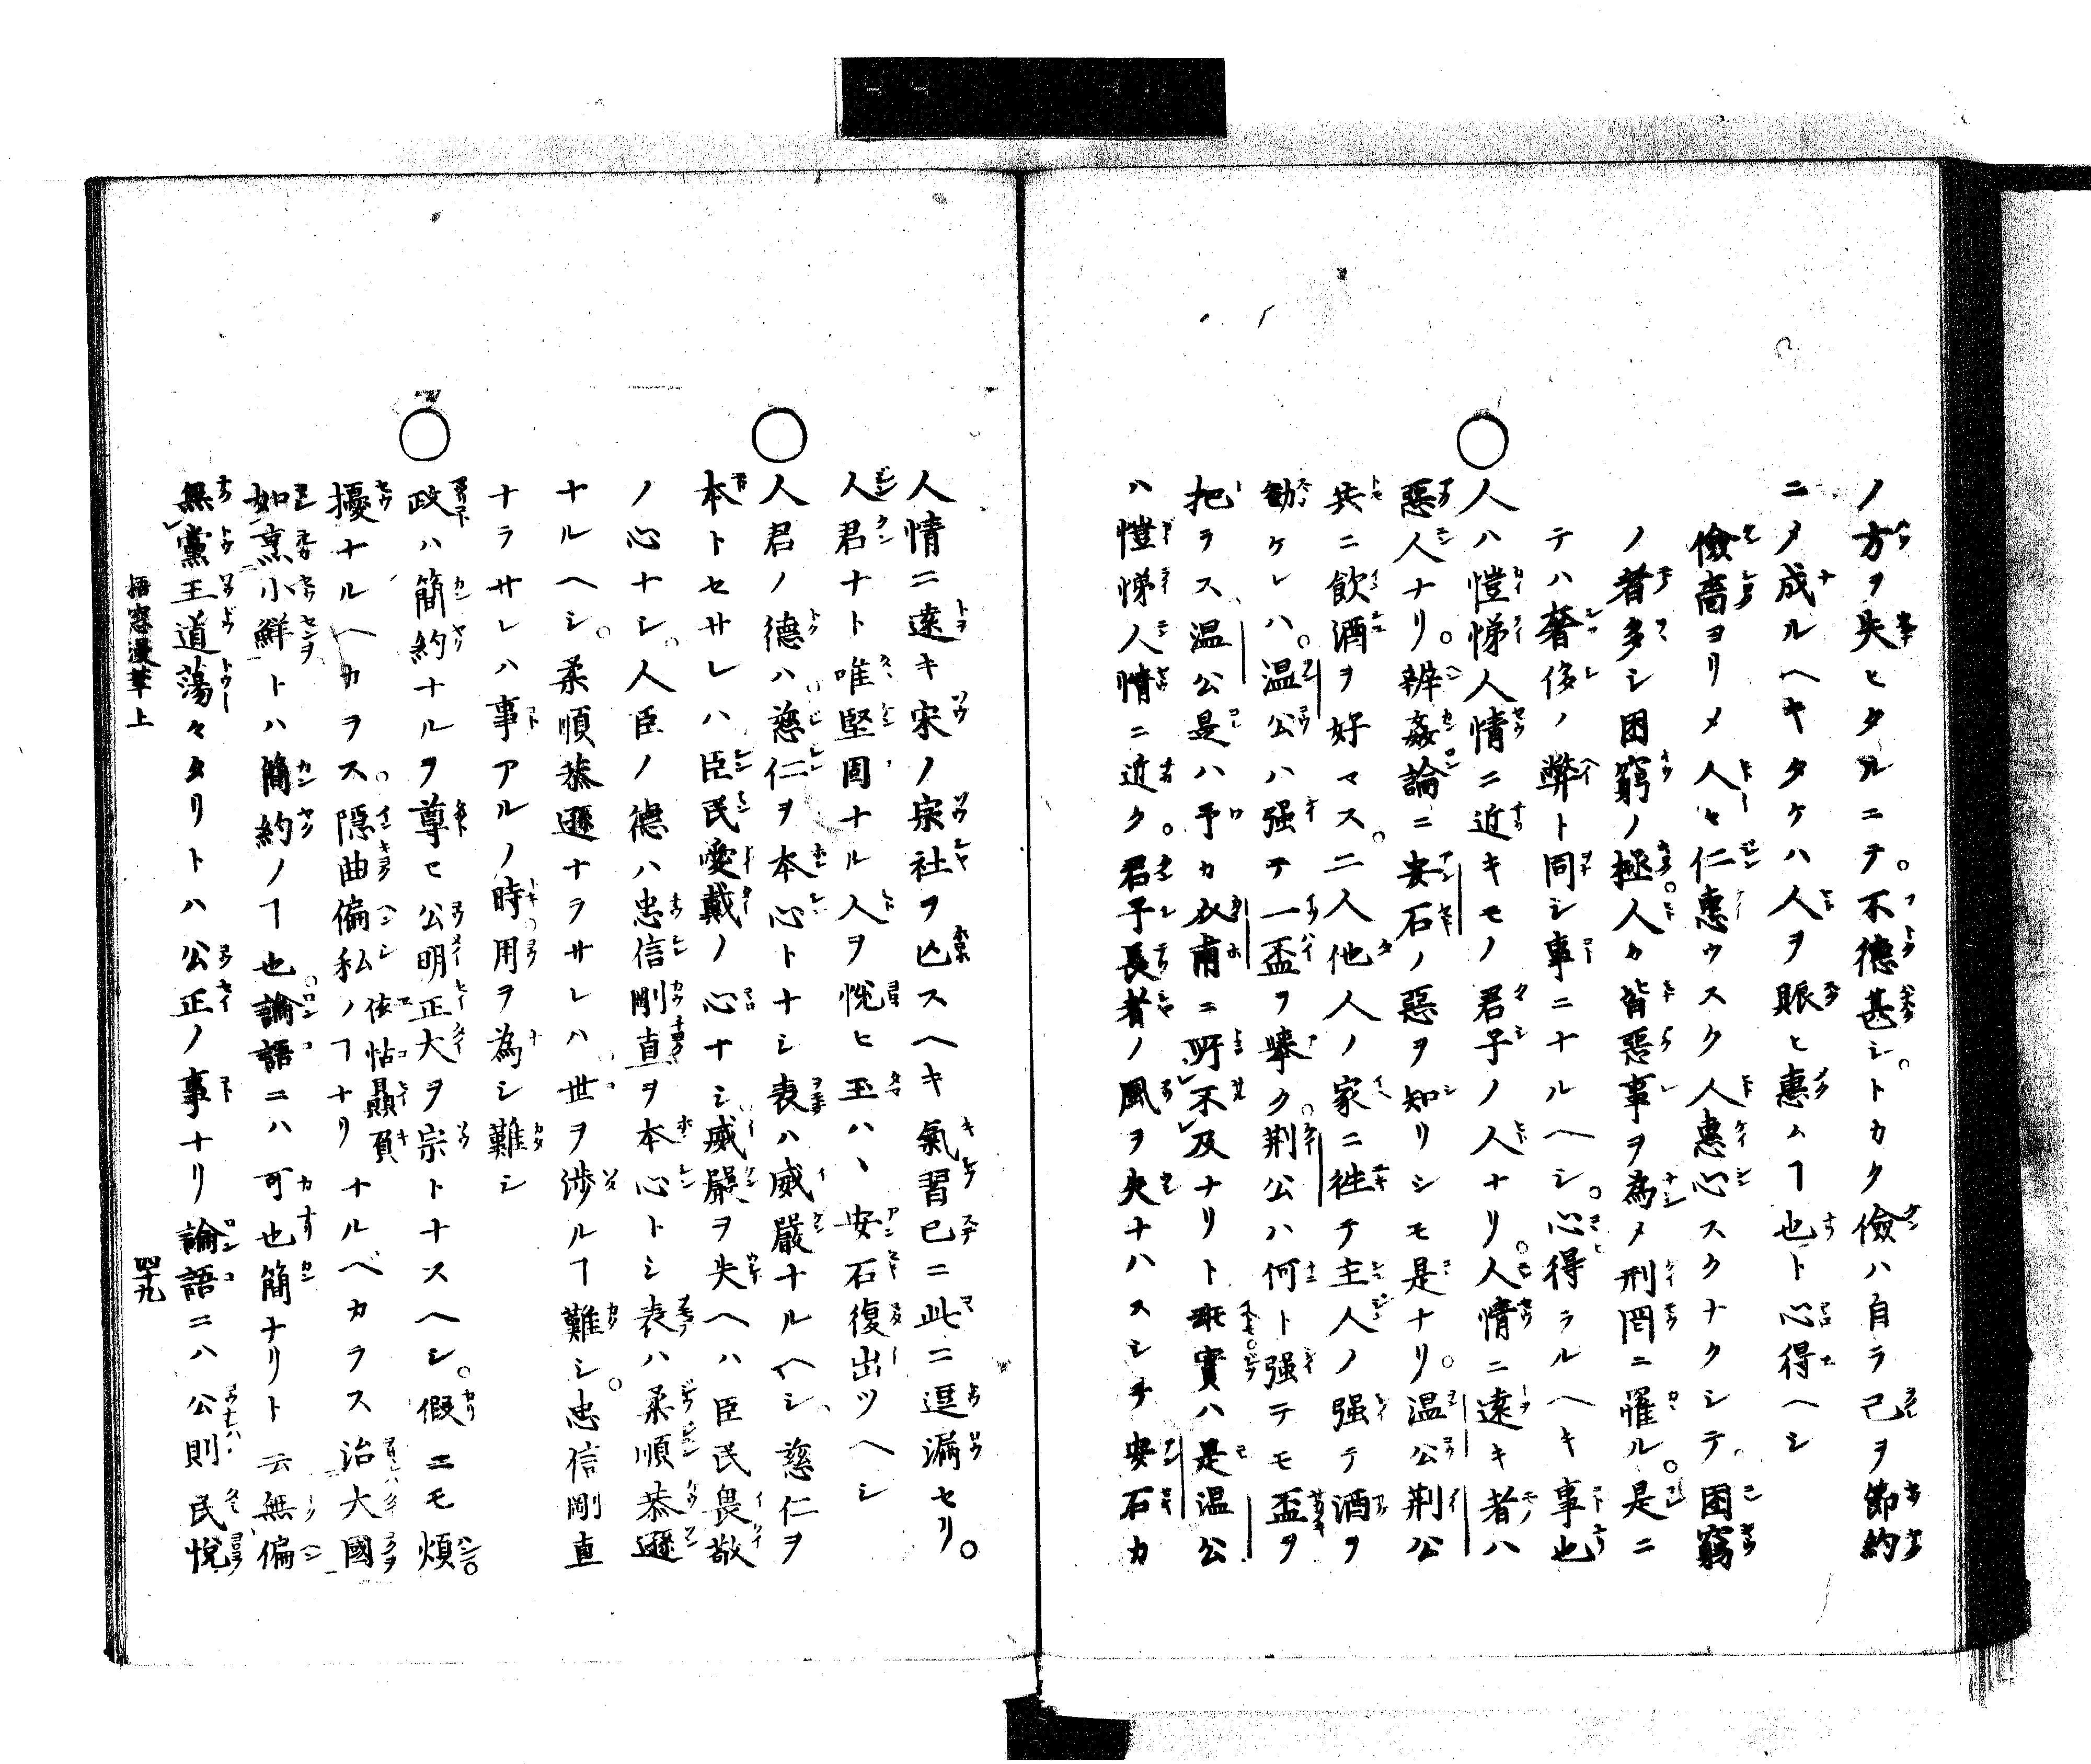 ノ方ヲ失ヒタルニテ。不德甚シ。トカク儉ハ自ラ己ヲ節約
ニメ成ルヘキタケハ人ヲ賑ヒ惠ムヿ也ト心得ヘシ
儉嗇ヨリメ人々仁惠ウスク人惠心スクナクシテ困窮
ノ者多シ困窮ノ極人カ皆惡事ヲ為メ刑罔ニ罹ル。是ニ
テハ奢侈ノ弊ト同シ事ニナルヘシ。心得ラルヘキ事也
○人ハ愷悌人情ニ近キモノ君子ノ人ナリ。人情ニ遠キ者ハ
惡人ナリ。辨姦論ニ安石ノ惡ヲ知リシモ是ナリ。温公荆公
共ニ飲酒ヲ好マス。二人他人ノ家ニ徃テ主人ノ强テ酒ヲ
勸ケレハ。温公ハ强テ一盃ヲ擧ク。荆公ハ何ト强テモ盃ヲ
把ラス温公是ハ予カ介甫ニ所不及ナリト 實ハ是温公
ハ愷悌人情ニ近ク。君子長者ノ風ヲ失ナハスシテ安石カ
人情ニ遠キ宋ノ宗社ヲ亾スヘキ氣習已ニ此ニ逗漏セリ。
人君ナト唯堅固ナル人ヲ悅ヒ玉ハヽ安石復出ツヘシ
○人君ノ德ハ慈仁ヲ本心トナシ表ハ威嚴ナルヘシ、慈仁ヲ
本トセサレハ臣民愛戴ノ心ナシ威嚴ヲ失ヘハ臣民畏敬
ノ心ナシ。人臣ノ德ハ忠信剛直ヲ本心トシ表ハ柔順恭遜
ナルヘシ。柔順恭遜ナラサレハ世ヲ渉ルヿ難シ。忠信剛直
ナラサレハ事アルノ時用ヲ為シ難シ
○政ハ簡約ナルヲ尊ヒ公明正大ヲ宗トナスヘシ。假ニモ煩
擾ナルヘカラス。隠曲偏私ノヿナリ 依怙贔屓 ナルベカラス治大國
如烹小鮮トハ簡約ノヿ也。論語ニハ可也簡ナリト云無偏
無黨王道蕩々タリトハ公正ノ事ナリ論語ニハ公則民悅
梧窓漫筆上
四十九